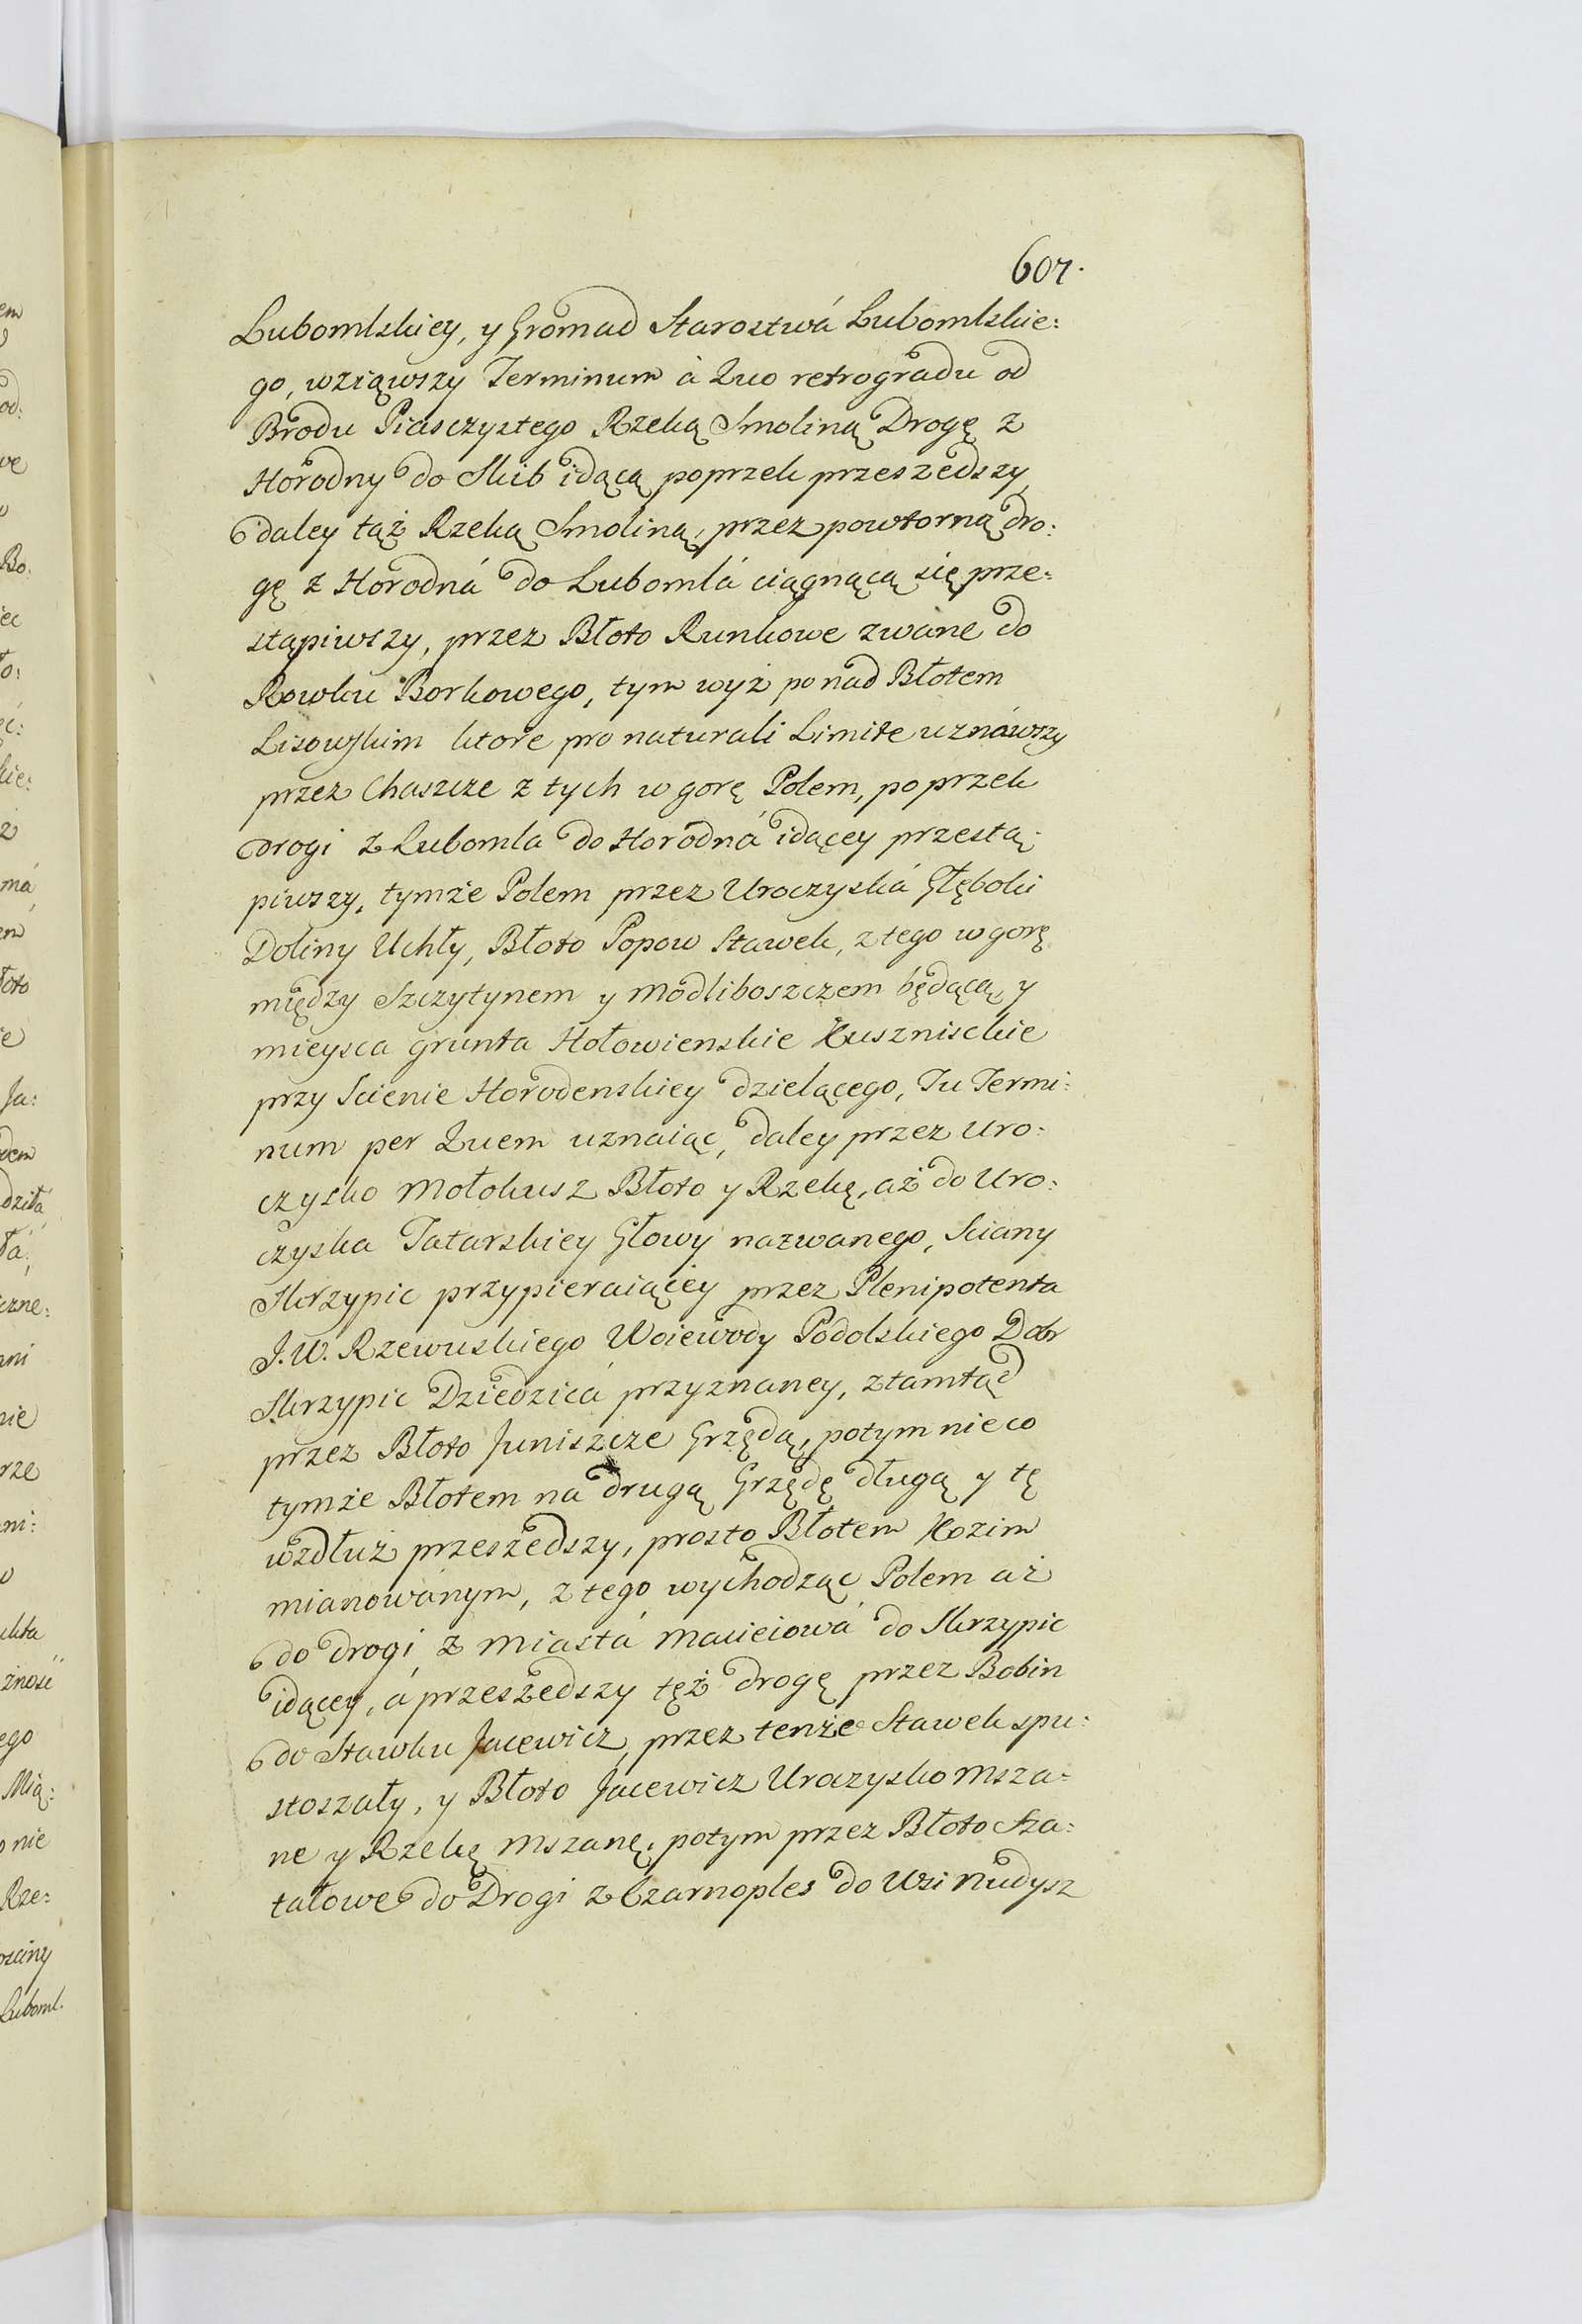 607.
Lubomlskiey, y Gromad Starostwá Lubomlskie:
go, wziąwszy Terminum à Quo retrogradu od
Brodu Piasczystego Rzeką Smoliną Drogę z
Horodny do Skib idącą poprzek przeszedszy,
daley tąż Rzeką Smoliną, przez powtorną dro:
gę z Horodná do Lubomlá ciągnącą się prze:
stąpiwszy, przez Błoto Runkowe zwáne do
Rowku Borkowego, tym wyż ponad Błotem
Lisowskim ktore pro naturali Limite uznáwszy
przez Chaszcze z tych w gorę Polem, poprzek
Drogi z Lubomla do Horodná idącey przestą:
piwszy, tymże Polem przez Uroczyská Głęboki
Doliny Uchły, Błoto Popow Stawek, z tego w gorę
między Szczytynem y Modliboszczem będącą, y
mieysca grunta Hołowienskie Kusznisckie
przy Scienie Horodenskiey dzielącego, Tu Termi:
num per Quem uznaiąc, daley przez Uro:
czysko Mołokusz Błoto y Rzekę, aż do Uro:
czyska Tatarskiey Głowy nazwanego, Sciany
Skrzypic przypieraiącey przez Plenipotenta
J.W. Rzewuskiego Woiewody Podolskiego Dobr
Skrzypic Dziedzicá przyznaney, ztamtąd
przez Błoto Juniszcze Grzędą, potym nieco
tymże Błotem na drugą Grzędę długą y tę
wzdłuż przeszedszy, prosto Błotem Kozim
mianowánym, z tego wychodząc Polem aż
do drogi z Miastá Macieiowá do Skrzypic
idącey, á przeszedszy tęż drogę przez Bobin
do Stawku Jacewicz, przez tenże Stawek spu:
stoszały, y Błoto Jacewicz Uroczysko Msza:
ne y Rzekę Mszanę, potym przez Błoto Sza:
tałowe do Drogi z Czarnoples do Wsi Nudysz